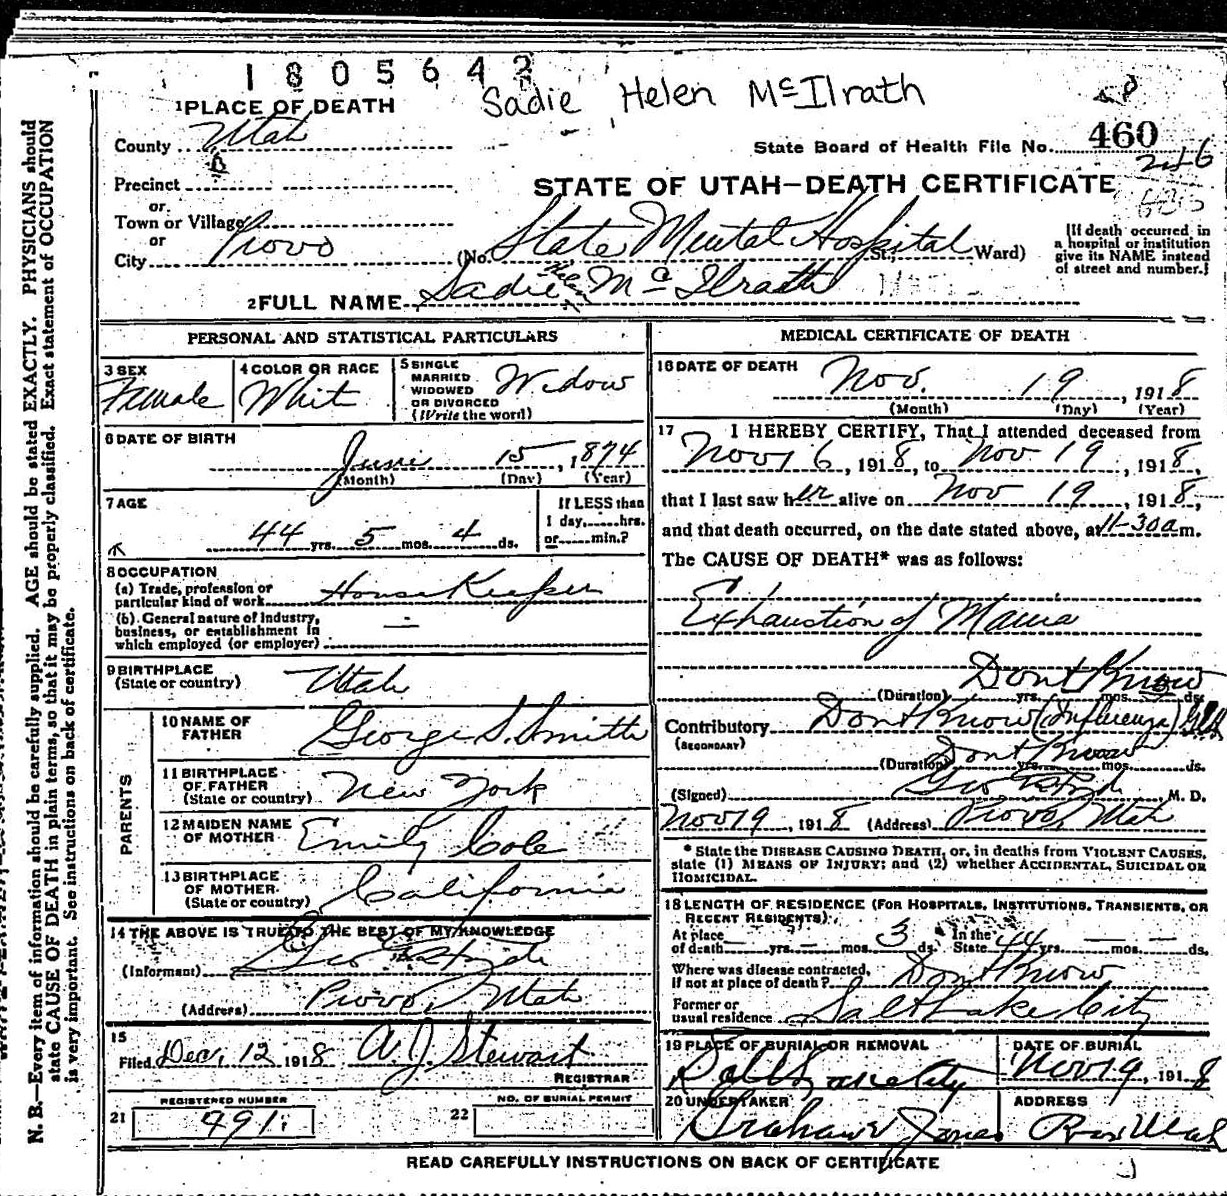 1805642
Sadie Helen McIlrath
1 PLACE OF DEATH
County Utah
State Board of Health File No. 460
246
Precinct
STATE OF UTAH—DEATH CERTIFICATE
or
Town or Village
or
City Provo (No. State Mental Hospital St.; Ward)
[If death occurred in
a hospital or institution
give its NAME instead
of street and number.]
2 FULL NAME Sadie Helen Mc Ilrath
PERSONAL AND STATISTICAL PARTICULARS
3 SEX Female
4 COLOR OR RACE White
5 SINGLE
MARRIED
WIDOWED
OR DIVORCED
(Write the word) Widow
6 DATE OF BIRTH
June 15, 1874
(Month) (Day) (Year)
7 AGE
44 yrs. 5 mos. 4 ds.
If LESS than
1 day,......hrs.
or......min.?
8 OCCUPATION
(a) Trade, profession or
particular kind of work House Keeper
(b) General nature of Industry,
business, or establishment in
which employed (or employer) —
9 BIRTHPLACE
(State or country) Utah
PARENTS
10 NAME OF
FATHER George S. Smith
11 BIRTHPLACE
OF FATHER
(State or country) New York
12 MAIDEN NAME
OF MOTHER Emily Cole
13 BIRTHPLACE
OF MOTHER
(State or country) California
14 THE ABOVE IS TRUE TO THE BEST OF MY KNOWLEDGE
(Informant) Geo
(Address) Provo, Utah
15
Filed Dec. 12 1918 A. J. Stewart
REGISTRAR
21 REGISTERED NUMBER
491.
22 NO. OF BURIAL PERMIT
MEDICAL CERTIFICATE OF DEATH
16 DATE OF DEATH
Nov. 19, 1918
(Month) (Day) (Year)
17 I HEREBY CERTIFY, That I attended deceased from
Nov 16, 1918, to Nov 19, 1918,
that I last saw her alive on Nov 19, 1918,
and that death occurred, on the date stated above, at 11-30a m.
The CAUSE OF DEATH* was as follows:
Exhaustion of Mania
Dont Know
(Duration) yrs. mos. ds.
Contributory Dont Know (Influenza)
(SECONDARY)
Dont Know
(Duration) yrs. mos. ds.
(Signed) Geo , M. D.
Nov 19, 1918 (Address) Provo, Utah
* State the DISEASE CAUSING DEATH, or, in deaths from VIOLENT CAUSES,
state (1) MEANS OF INJURY; and (2) whether ACCIDENTAL, SUICIDAL OR
HOMICIDAL.
18 LENGTH OF RESIDENCE (FOR HOSPITALS, INSTITUTIONS, TRANSIENTS, OR
RECENT RESIDENTS).
At place
of death — yrs. — mos. 3 ds. In the
State 44 yrs. — mos. — ds.
Where was disease contracted,
if not at place of death? Dont Know
Former or
usual residence Salt Lake City
19 PLACE OF BURIAL OR REMOVAL
Salt Lake City
DATE OF BURIAL
Nov 19, 1918
20 UNDERTAKER
Graham Jones
ADDRESS
Utah
READ CAREFULLY INSTRUCTIONS ON BACK OF CERTIFICATE
N. B.—Every item of information should be carefully supplied. AGE should be stated EXACTLY. PHYSICIANS should
state CAUSE OF DEATH in plain terms, so that it may be properly classified. Exact statement of OCCUPATION
is very important. See instructions on back of certificate.